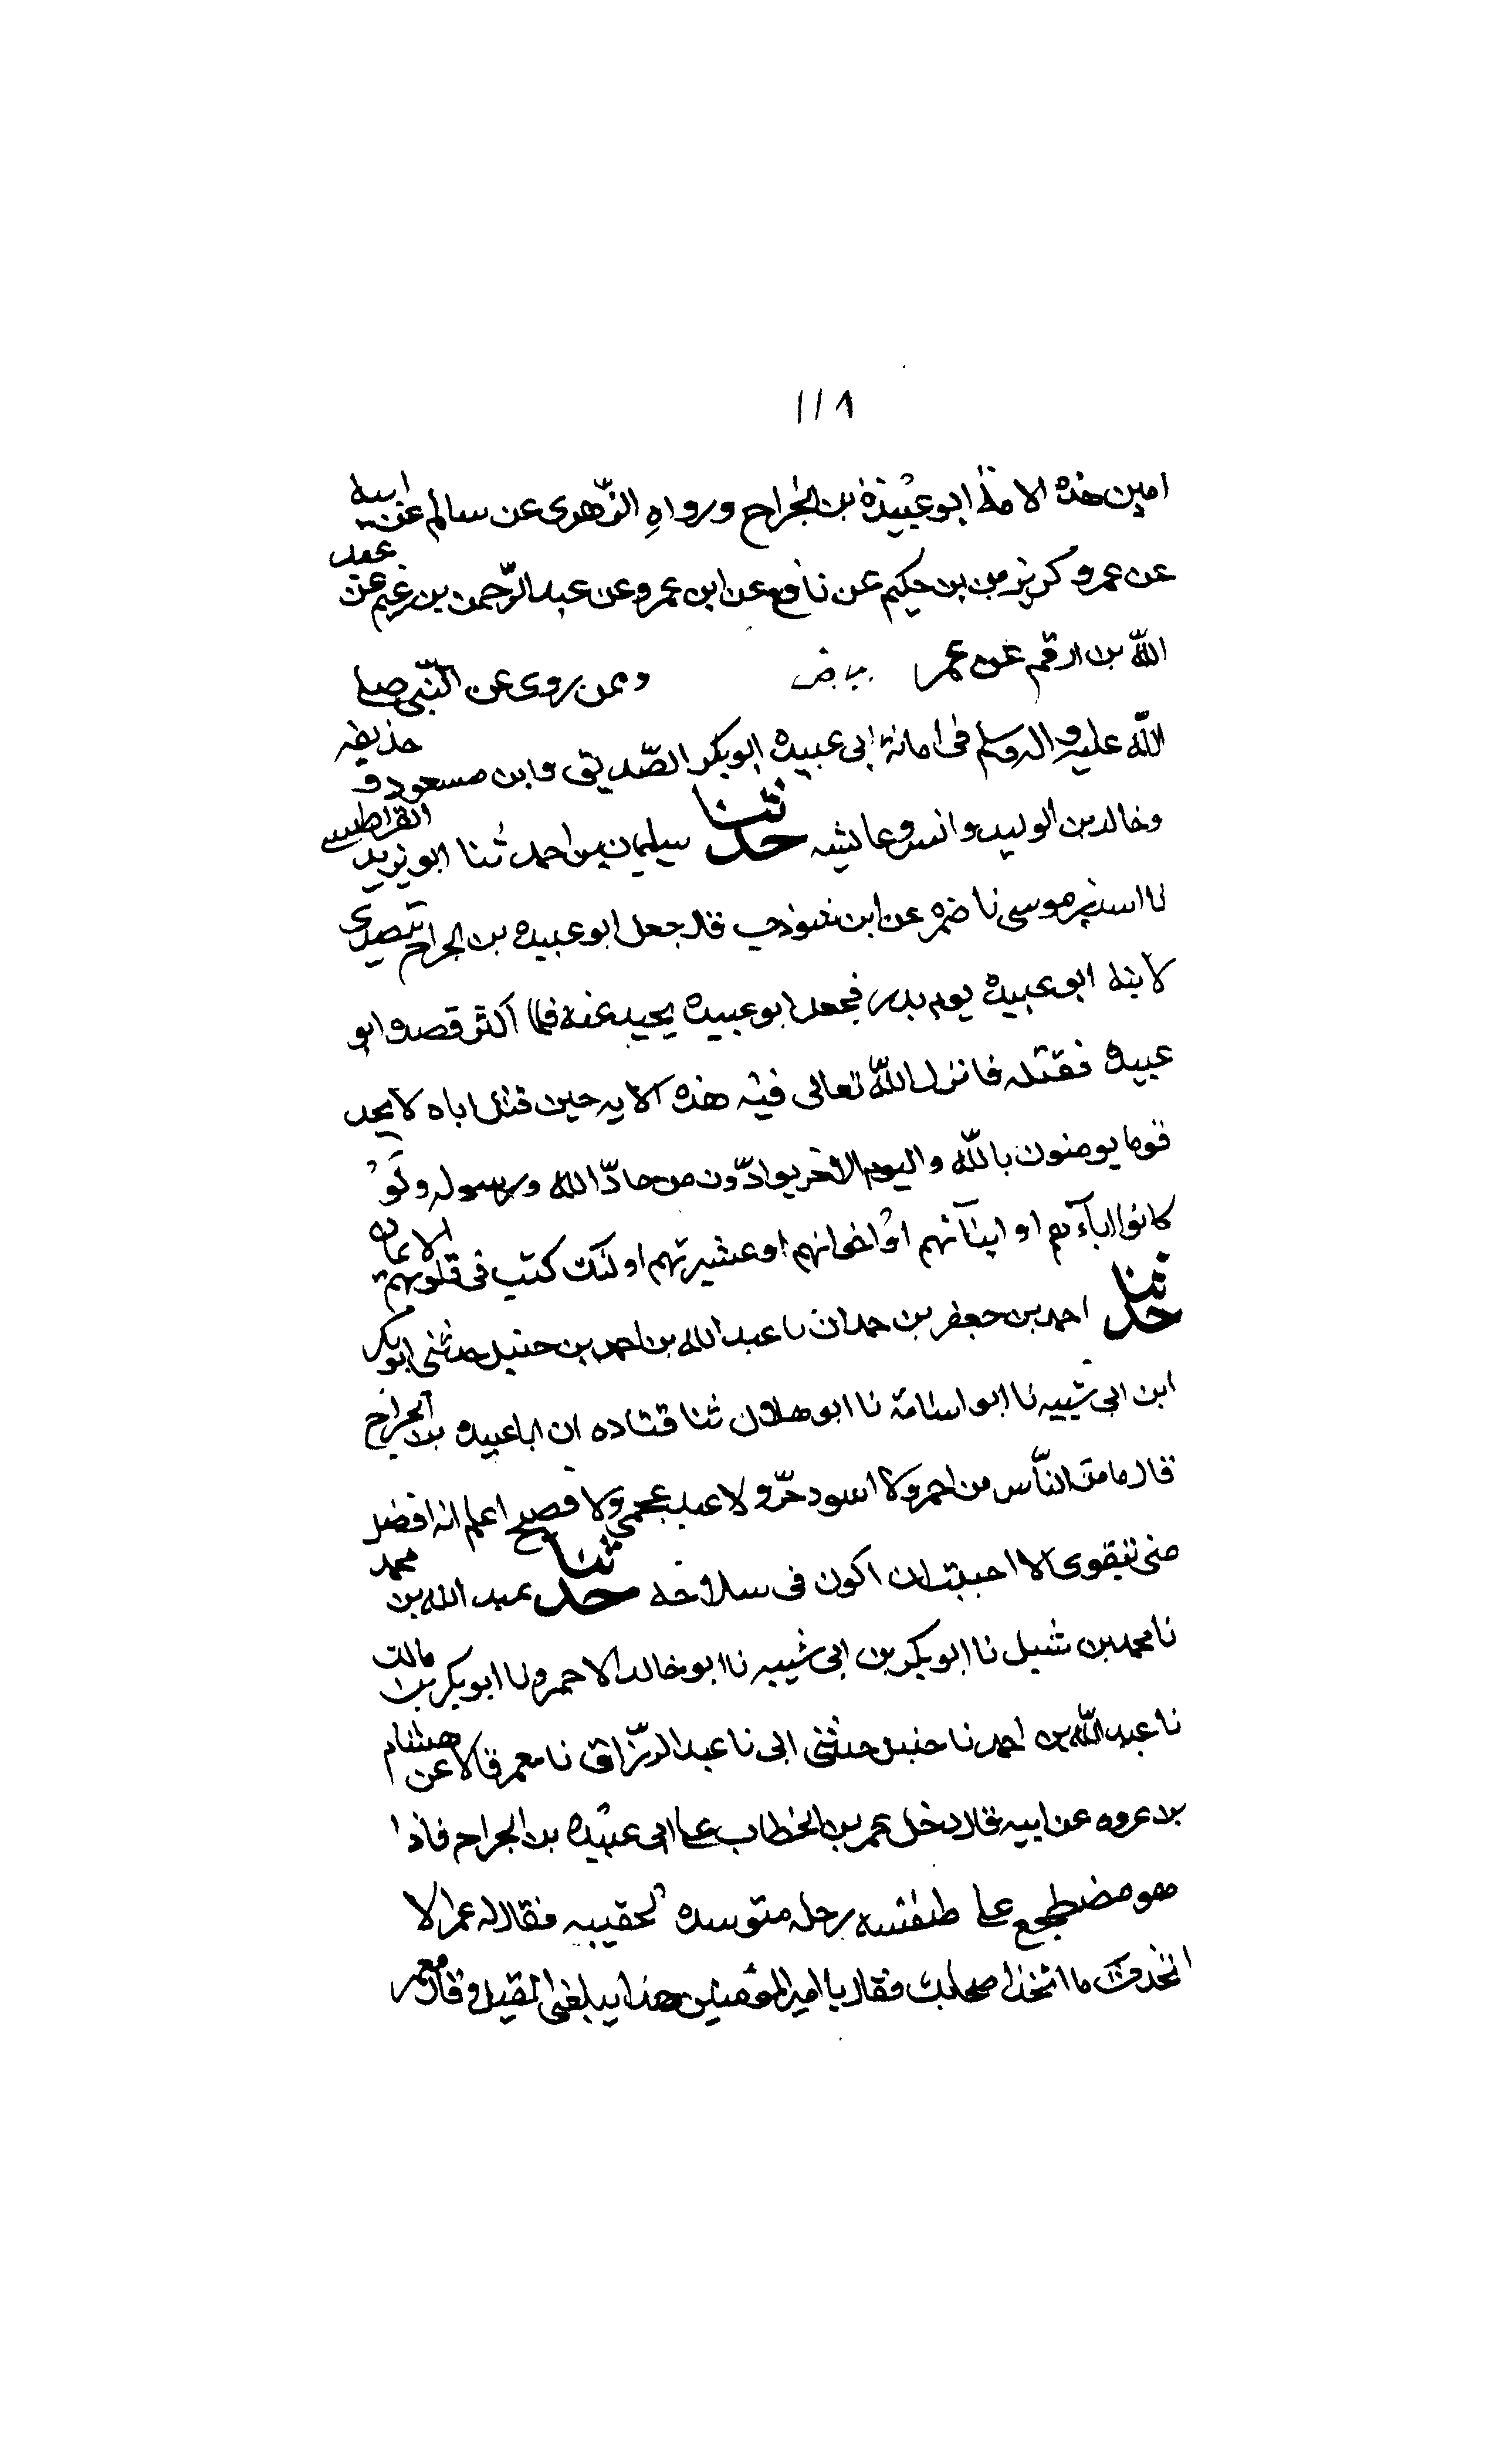 ١١٨
امين هذه الامة ابو عبيدة بن الجراح ورواه الزهرى عن سالم عن ابيه
عن عمرو كريز من بن حكيم عن نافع عن ابن عمرو عن عبد الرحمن بن غنم عن عبد
الله بن ارقم عن عمر بياض وممن روى عن النبى صلى
الله عليه واله وسلم فى امانة ابى عبيده ابو بكر الصديق وابن مسعود و حذيفه
وخالد بن الوليد وانس وعايشه حدثنا سليمان بن احمد ثنا ابو يزيد القراطيسى
نا اسد بن موسى نا ضمره عن ابن شوذب قال جعل ابو عبيده بن الجراح يتصدى
لابنه ابو عبيدة يوم بدر فجعل ابو عبيدة يحيد عنه فلما اكثر قصده ابو
عبيده فقتله فانزل الله تعالى فيه هذه الايه حين قتل اباه لا يجد
قوما يومنون بالله واليوم الاخر يوادّون من حادّ الله ورسوله ولو
كانوا اباءهم او ابنآئهم او اخوانهم او عشيرتهم اولئك كتب فى قلوبهم الايمان
حدثنا احمد بن جعفر بن حمدان نا عبد الله بن احمد بن حنبل حدثنى ابو بكر
ابن ابى شيبه نا ابو اسامة نا ابو هلال ثنا قتاده ان ابا عبيده بن الجراح
قال ما من الناس من احمر ولا اسود حرّ ولا عبد عجمى ولا فصيح اعلم انه افضل
منى بتقوى الا احببت ان اكون فى سلاخه حدثنا عبد الله بن محمد
نا محمد بن شبل نا ابو بكر بن ابى شيبه نا ابو خالد الاحمر ونا ابو بكر بن مالك
نا عبد الله بن احمد نا حنبل حدثنى ابى نا عبد الرزّاق نا معمر قالا عن هشام
بن عروه عن ابيه قال دخل عمر بن الخطاب على ابى عبيدة بن الجراح فاذا
هو مضطجع على طنفسه رحله متوسده لحقيبه فقال له عمر الا
اتخذت ما اتخذ اصحابك فقال يا امير المؤمنين هذا يبلغنى المقيل وقال معمر